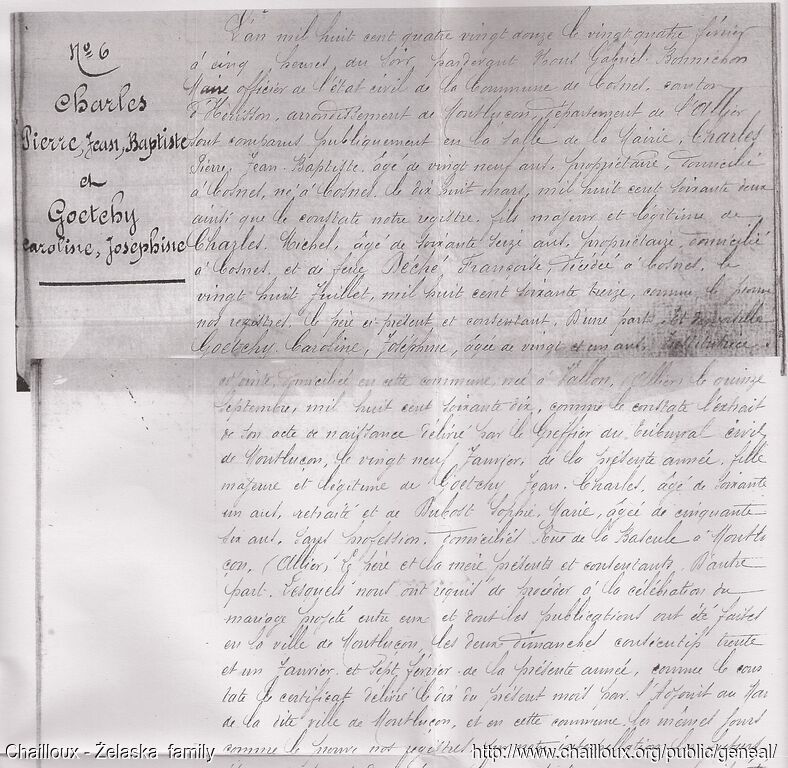 N° 6
Charles
Pierre, Jean, Baptiste
et
Goetchy
Caroline, Josephine
L'an mil huit cent quatre vingt douze le vingt quatre février
à cinq heures, du soir, pardevant Nous Gabriel Bonnichon
Maire officier de l'état civil de la Commune de Cosnes, canton
d'Hérisson, arrondissement de Montluçon, département de l'Allier
sont comparus publiquement en la salle de la Mairie, Charles
Pierre, Jean-Baptiste, âgé de vingt neuf ans, propriétaire, domicilié
à Cosnes, né à Cosnes, le dix huit Mars, mil huit cent soixante deux
ainsi que le constate notre registre, fils majeur et légitime de
Charles Michel, âgé de soixante seize ans, propriétaire, domicilié
à Cosnes, et de feue Béché, Françoise, décédée à Cosnes, le
vingt huit Juillet, mil huit cent soixante treize, comme le prouve
nos registres, le père ici présent et consentant, D'une part. Et
Goetchy Caroline, Joséphine, âgée de vingt et un ans, institutrice
adjointe, domiciliée en cette commune, née à Vallon, (Allier) le quinze
Septembre, mil huit cent soixante dix, comme le constate l'extrait
de son acte de naissance délivré par le Greffier du tribunal civil
de Montluçon, le vingt neuf Janvier, de la présente année, fille
majeure et légitime de Goetchy Jean-Charles, âgé de soixante
un ans, retraité et de Dubost Sophie-Marie, âgée de cinquante
six ans, sans profession, domiciliés Rue de la Bascule à Montlu
çon, (Allier) Le père et la mère présents et consentants, D'autre
part. Lesquels nous ont requis de procéder à la célébration du
mariage projeté entre eux et dont les publications ont été faites
en la ville de Montluçon, les deux dimanches consécutifs trente
et un Janvier et sept février de la présente année, comme le cons
tate le certificat délivré le dix du présent mois par l'Adjoint au Mai
de la dite ville de Montluçon, et en cette commune les mêmes jours
comme le prouve nos registres
Chailloux - Želaska family
http://www.chailloux.org/public/geneal/